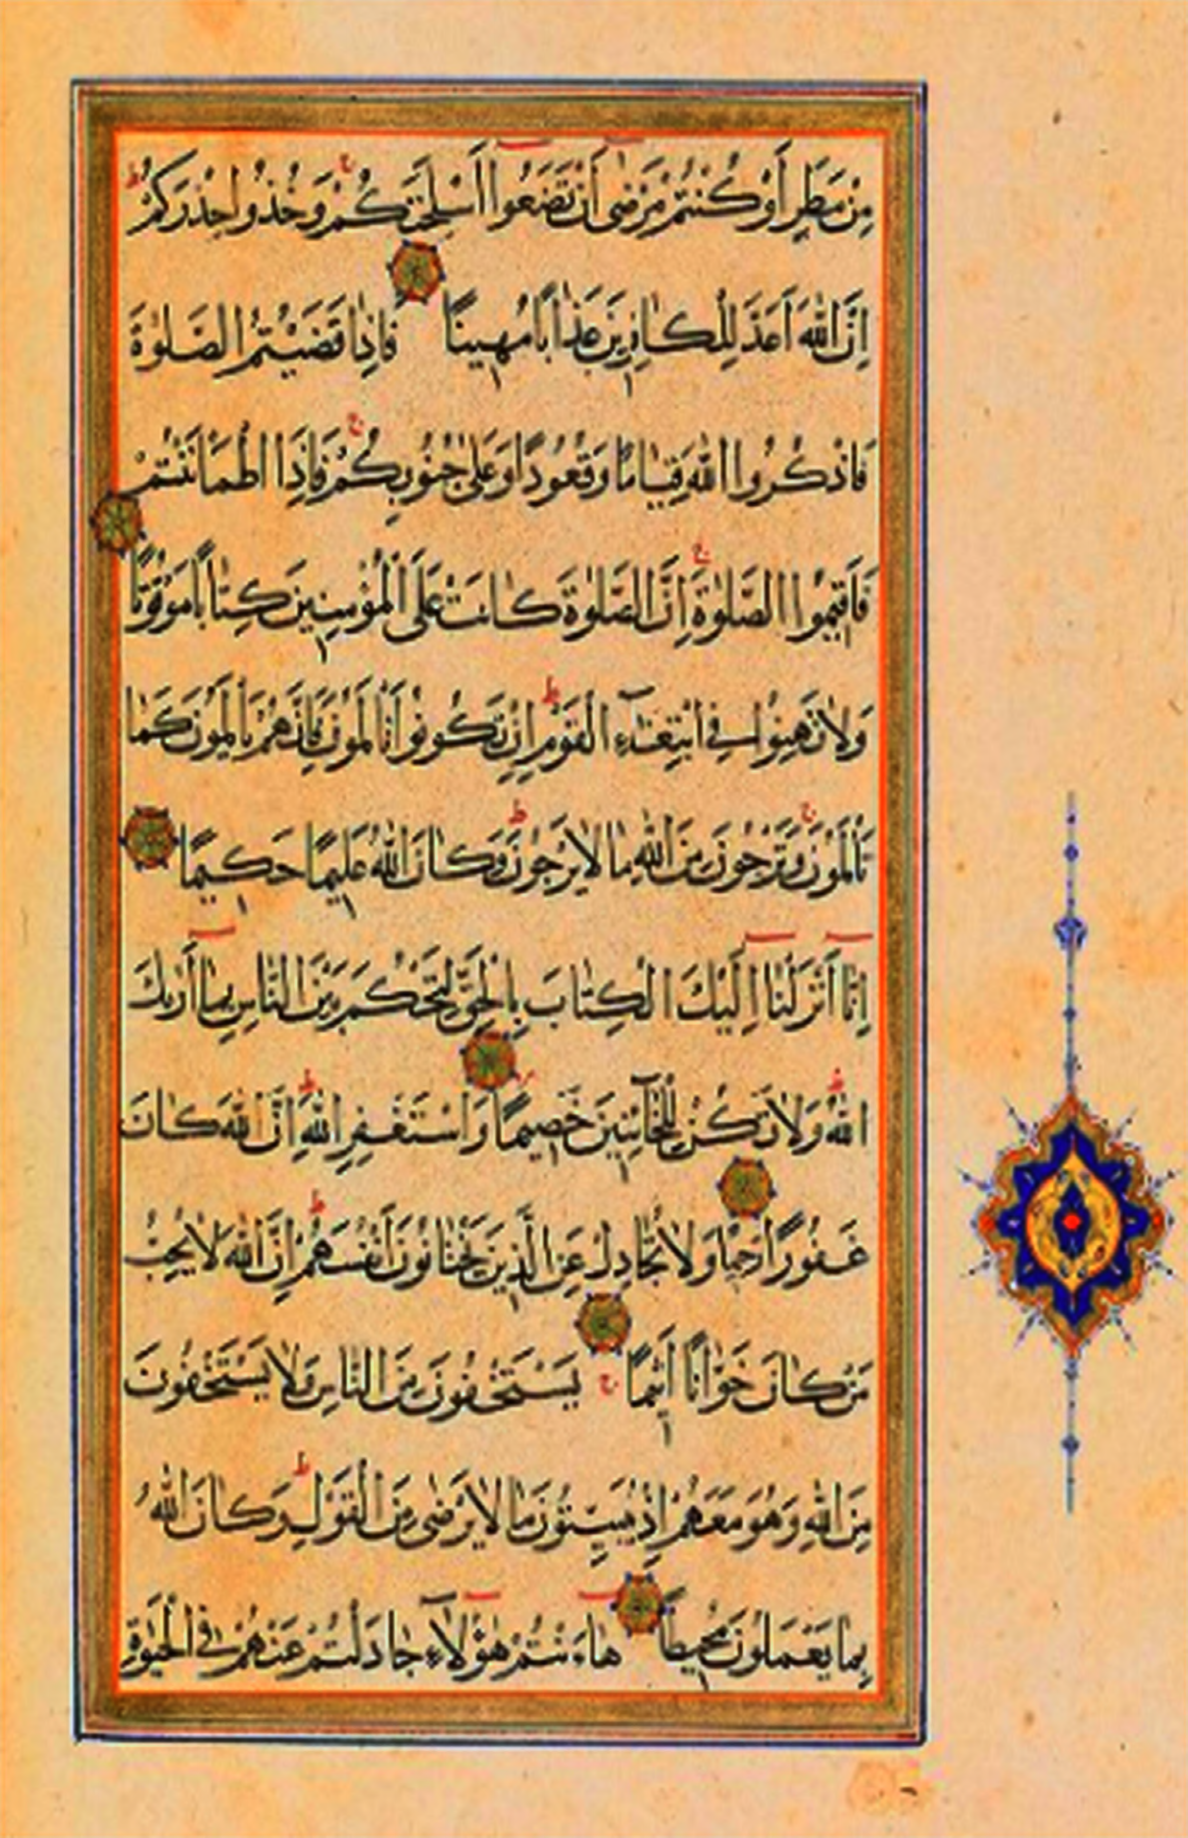 مِنْ مَطَرٍ أَوْ كُنْتُمْ مَرْضٰى أَنْ تَضَعُوا أَسْلِحَتَكُمْ وَخُذُوا حِذْرَكُمْ
اِنَّ اللّٰهَ أَعَدَّ لِلْكَافِرِينَ عَذَابًا مُهِينًا فَاِذَا قَضَيْتُمُ الصَّلٰوةَ
فَاذْكُرُوا اللّٰهَ قِيَامًا وَقُعُودًا وَعَلٰى جُنُوبِكُمْ فَاِذَا اطْمَأْنَنْتُمْ
فَأَقِيمُوا الصَّلٰوةَ اِنَّ الصَّلٰوةَ كَانَتْ عَلَى الْمُؤْمِنِينَ كِتَابًا مَوْقُوتًا
وَلَا تَهِنُوا فِي ابْتِغَاءِ الْقَوْمِ اِنْ تَكُونُوا تَأْلَمُونَ فَاِنَّهُمْ يَأْلَمُونَ كَمَا
تَأْلَمُونَ وَتَرْجُونَ مِنَ اللّٰهِ مَا لَا يَرْجُونَ وَكَانَ اللّٰهُ عَلِيمًا حَكِيمًا
اِنَّا أَنْزَلْنَا اِلَيْكَ الْكِتَابَ بِالْحَقِّ لِتَحْكُمَ بَيْنَ النَّاسِ بِمَا أَرٰىكَ
اللّٰهُ وَلَا تَكُنْ لِلْخَآئِنِينَ خَصِيمًا وَاسْتَغْفِرِ اللّٰهَ اِنَّ اللّٰهَ كَانَ
غَفُورًا رَحِيمًا وَلَا تُجَادِلْ عَنِ الَّذِينَ يَخْتَانُونَ أَنْفُسَهُمْ اِنَّ اللّٰهَ لَا يُحِبُّ
مَنْ كَانَ خَوَّانًا أَثِيمًا يَسْتَخْفُونَ مِنَ النَّاسِ وَلَا يَسْتَخْفُونَ
مِنَ اللّٰهِ وَهُوَ مَعَهُمْ اِذْ يُبَيِّتُونَ مَا لَا يَرْضٰى مِنَ الْقَوْلِ وَكَانَ اللّٰهُ
بِمَا يَعْمَلُونَ مُحِيطًا هَاءَنْتُمْ هٰؤُلَآءِ جَادَلْتُمْ عَنْهُمْ فِي الْحَيٰوةِ